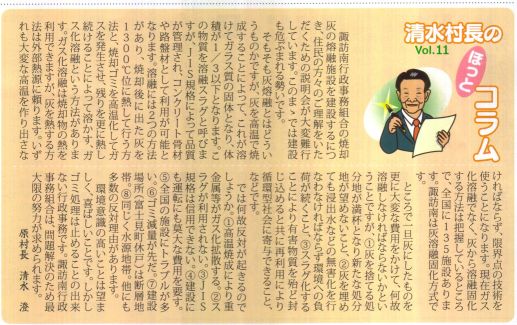 清水村長の
Vol.11
ほっと
コラム
諏訪南行政事務組合の焼却
灰の溶融施設を建設するにつ
き、住民の方々のご理解をいた
だくための説明会が大変難行
しています。このまゝでは建設
も危ぶまれる勢いです。
そもそも灰溶融とはどうい
うものかですが、灰を高温で焼
成することによって、これが溶
けてガラス質の固体となり、体
積が1/3以下となります。こ
の物質を溶融スラグと呼びま
すが、JIS規格によって品質
が管理され、コンクリート骨材
や路盤材として利用が可能と
なります。溶融には2つの方法
があり、焼却後に出た灰を
1300℃位に熱して行う方
法と、焼却ゴミを高温化してガ
スを発生させ、残りを更に熱し
続けることによって溶かす、ガ
ス化溶融という方法がありま
す。ガス化溶融は焼却物の熱を
利用できますが、灰を熱する方
法は外部熱源に頼ります。いず
れも大変な高温を作り出さな
ければならず、限界点の技術を
使うことになります。現在ガス
化溶融でなく、灰から溶融固化
する方法は把握しているところ
で、全国に135施設あります。
諏訪南は灰溶融固化方式で
す。
ところで一旦灰にしたものを
更に大変な費用をかけて、何故
溶融しなければならないかとい
うことですが、①灰を捨てる処
分地が満杯となり新たな処分
地が望めないこと、②灰を埋め
ても浸出水などの無害化を行
なわなければならず環境への負
荷が続くこと、③スラグ化する
ことにより有害物質を殆ど封
じ込めると共に再利用により
循環型社会に寄与できること、
などです。
では何故反対が起きるので
しょうか。①高温焼成により重
金属等がガス化拡散する。②ス
ラグが利用されない。③JIS
規格は信用できない。④建設に
も運転にも莫大な費用を要す。
⑤全国の施設にトラブルが多
い。⑥ゴミ減量が先だ。⑦建設
場所の富士見町萩は断層地
帯。⑧飲用の水源地帯。他にも
多数の反対理由があります。
環境意識の高いことは望ま
しく、喜ばしいことです。しかし
ゴミ処理は止めることの出来
ない行政事務です。諏訪南行政
事務組合は、問題解決のため最
大限の努力が求められます。
原村長 清水 澄